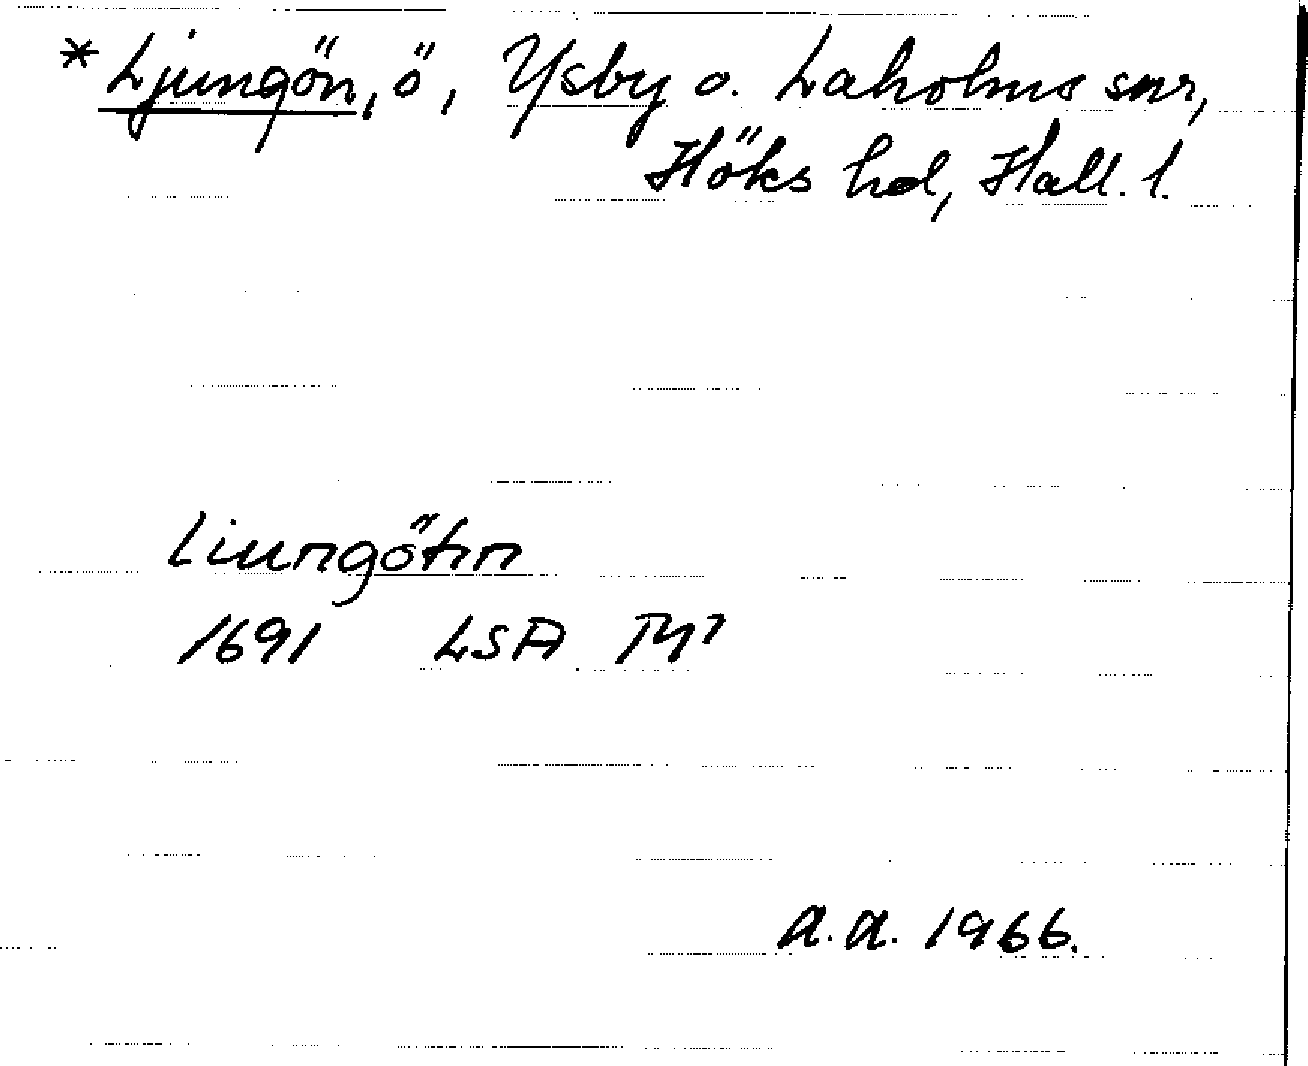 *Ljungön, ö, Ysby o. Laholms snr,
Höks hd, Hall. l.
Liungöhn
1691 LSA M¹
A.A. 1966.